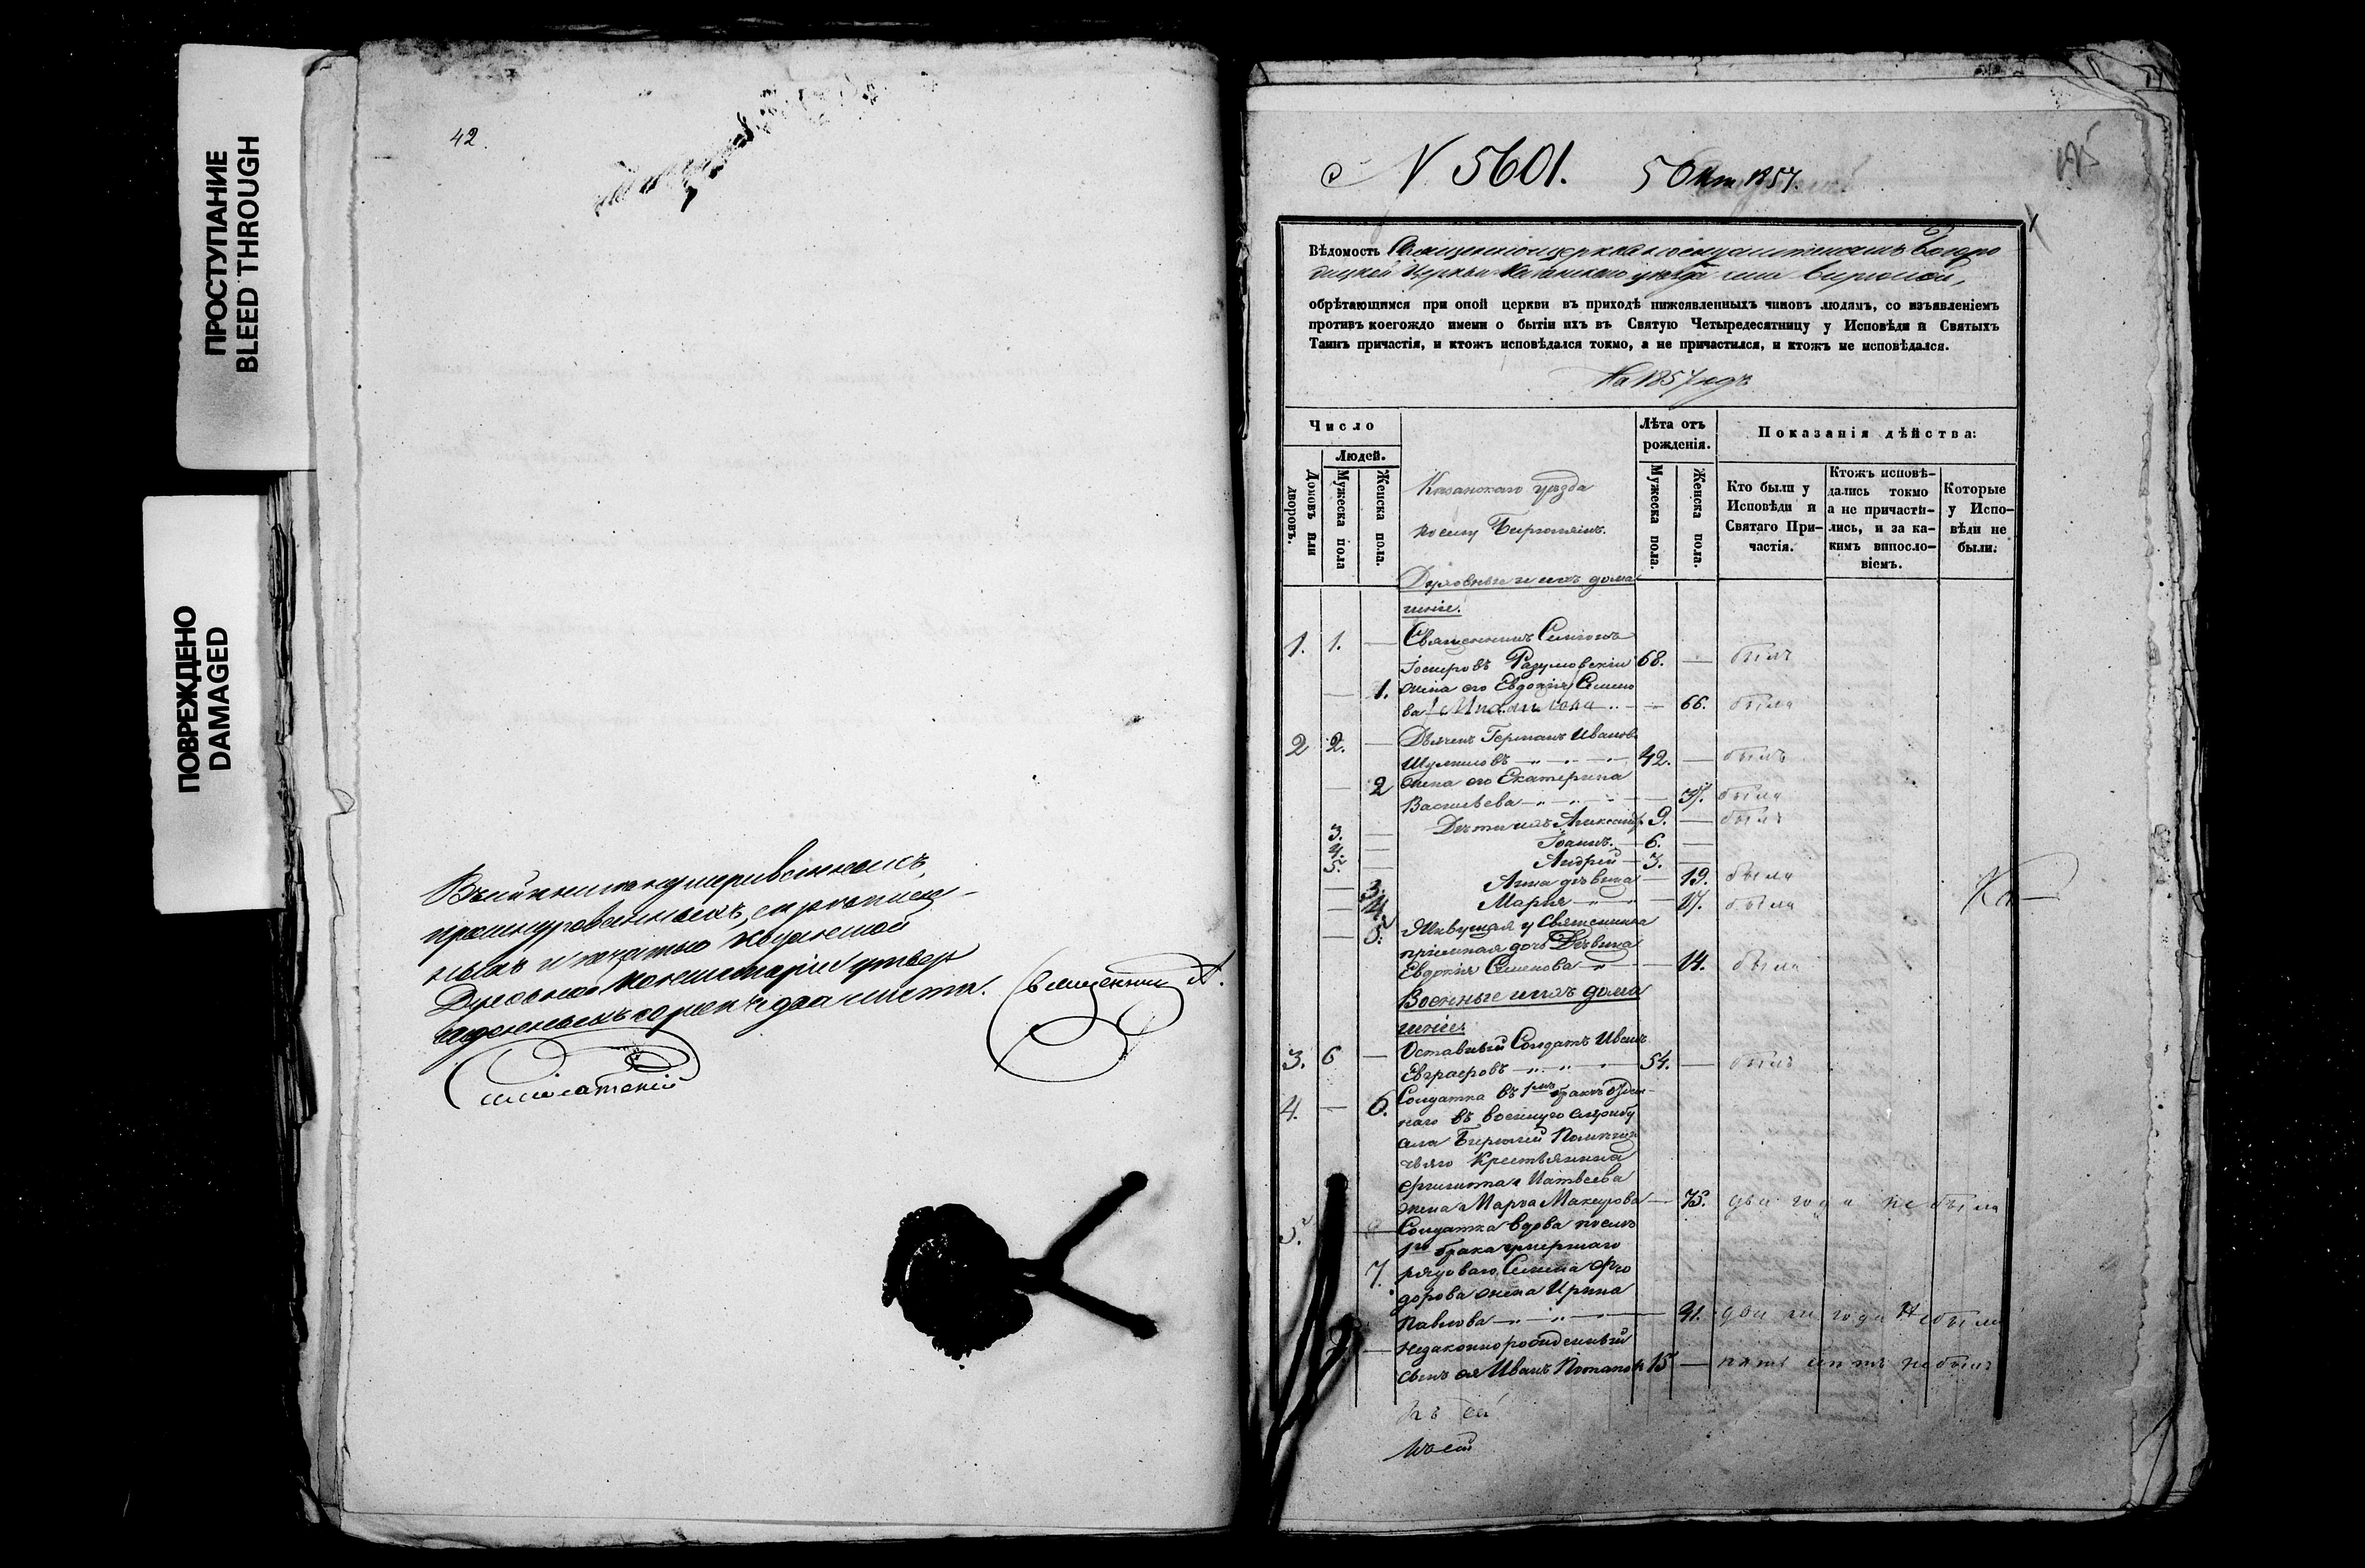 ПРОСТУПАНИЕ
BLEED THROUGH
ПОВРЕЖДЕНО
DAMAGED
42.
прошнурованныхъ,
ныхъ и печатью
Духовной Консисторіи утвер
жденныхъ сорокъ два листа.
Священникъ А.
N 5601. 5 Окт 1857.
125
Вѣдомость
Церкви Казанскаго уѣзда села Бирюлей,
обрѣтающимся при оной церкви въ приходѣ нижеявленныхъ чиновъ людямъ, со изъявленіемъ
противъ коегождо имени о бытіи ихъ въ Святую Четыредесятницу у Исповѣди и Святыхъ
Таинъ причастія, и ктожъ исповѣдался токмо, а не причастился, и ктожъ не исповѣдался.
На 1857 годъ
Число
Людей.
Домовъ или дворовъ.
Мужеска пола
Женска пола.
Казанскаго уѣзда
по селу
Лѣта отъ рожденія.
Мужеска пола.
Женска пола.
Показанія дѣйства:
Кто были у Исповѣди и Святаго При-частія.
Ктожъ исповѣ-дались токмо а не причасти-лись, и за ка-кимъ виносло-віемъ.
Которые у Испо-вѣди не были.
Духовные и ихъ дома
шніе.
1. 1. — Священникъ Симеонъ
Іосифовъ Разумовскій 68. — былъ
— 1. жена его Евдокія Семено
ва — 66. была
2 2. — Дьячекъ Германъ Ивановъ
Шумиловъ 42. — былъ
— 2 жена его Екатерина
Васильева — 37. была
3. — Дѣти ихъ Александръ 9. — былъ
4. — Іоаннъ 6. —
5. — Андрей 3. —
— 3. Анна дѣвица — 19. была
— 4. Марія — 17. была
— 5. Живущая у Священника
пріемная дочь Дѣвица
Евдокія Семенова — 14. была
Военные и ихъ дома
шніе
3. 6 — Отставный Солдатъ Иванъ
Евграфовъ 54. — былъ
4. — 6. Солдатка въ 1мъ бракѣ отдан
наго въ военную службу
села Бирюлей Помѣщи
чьяго Крестьянина
Матвеева
жена Марѳа — 75. два года не была
5. — Солдатка вдова
1го брака умершаго
7. рядоваго Семена Фео
дорова жена Ирина
Павлова — 41. два года не была
— незаконнорожденный
сынъ ея Иванъ 15 — пять лѣтъ не былъ
Къ сей